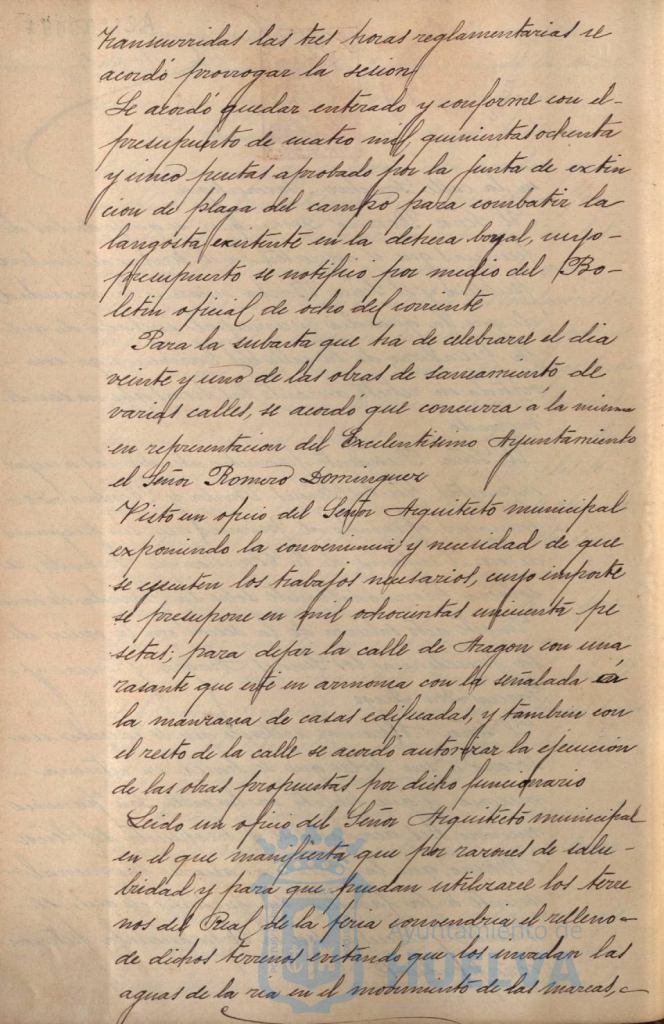 transcurridas las tres horas reglamentarias se
acordó prorrogar la sesion
Se acordó quedar enterado y conforme con el-
presupuesto de cuatro mil, quinientas ochenta
y cinco pesetas aprobado por la junta de extin
cion de plaga del campo para combatir la
langosta existente en la dehesa boyal, cuyo-
presupuesto se notificó por medio del Bo-
letin oficial de ocho del corriente
Para la subasta que ha de celebrarse el dia
veinte y uno de las obras de saneamiento de
varias calles, se acordó que concurra á la misma
en representacion del Excelentisimo Ayuntamiento
el Señor Romero Dominguez
Visto un oficio del Señor Arquitecto municipal
exponiendo la conveniencia y necesidad de que
se ejecuten los trabajos necesarios, cuyo importe
se presupone en mil ochocientas cincuenta pe
setas; para dejar la calle de Aragon con una
rasante que esté en armonia con la señalada á
la manzana de casas edificadas, y tambien con
el resto de la calle se acordó autorizar la ejecucion
de las obras propuestas por dicho funcionario
Leido un oficio del Señor Arquitecto municipal
en el que manifiesta que por razones de salu-
bridad y para que puedan utilizarse los terre
nos del Real de la feria convendria el relleno-
de dichos terrenos evitando que los invadan las
aguas de la ria en el movimiento de las mareas,
Ayuntamiento de
HUELVA